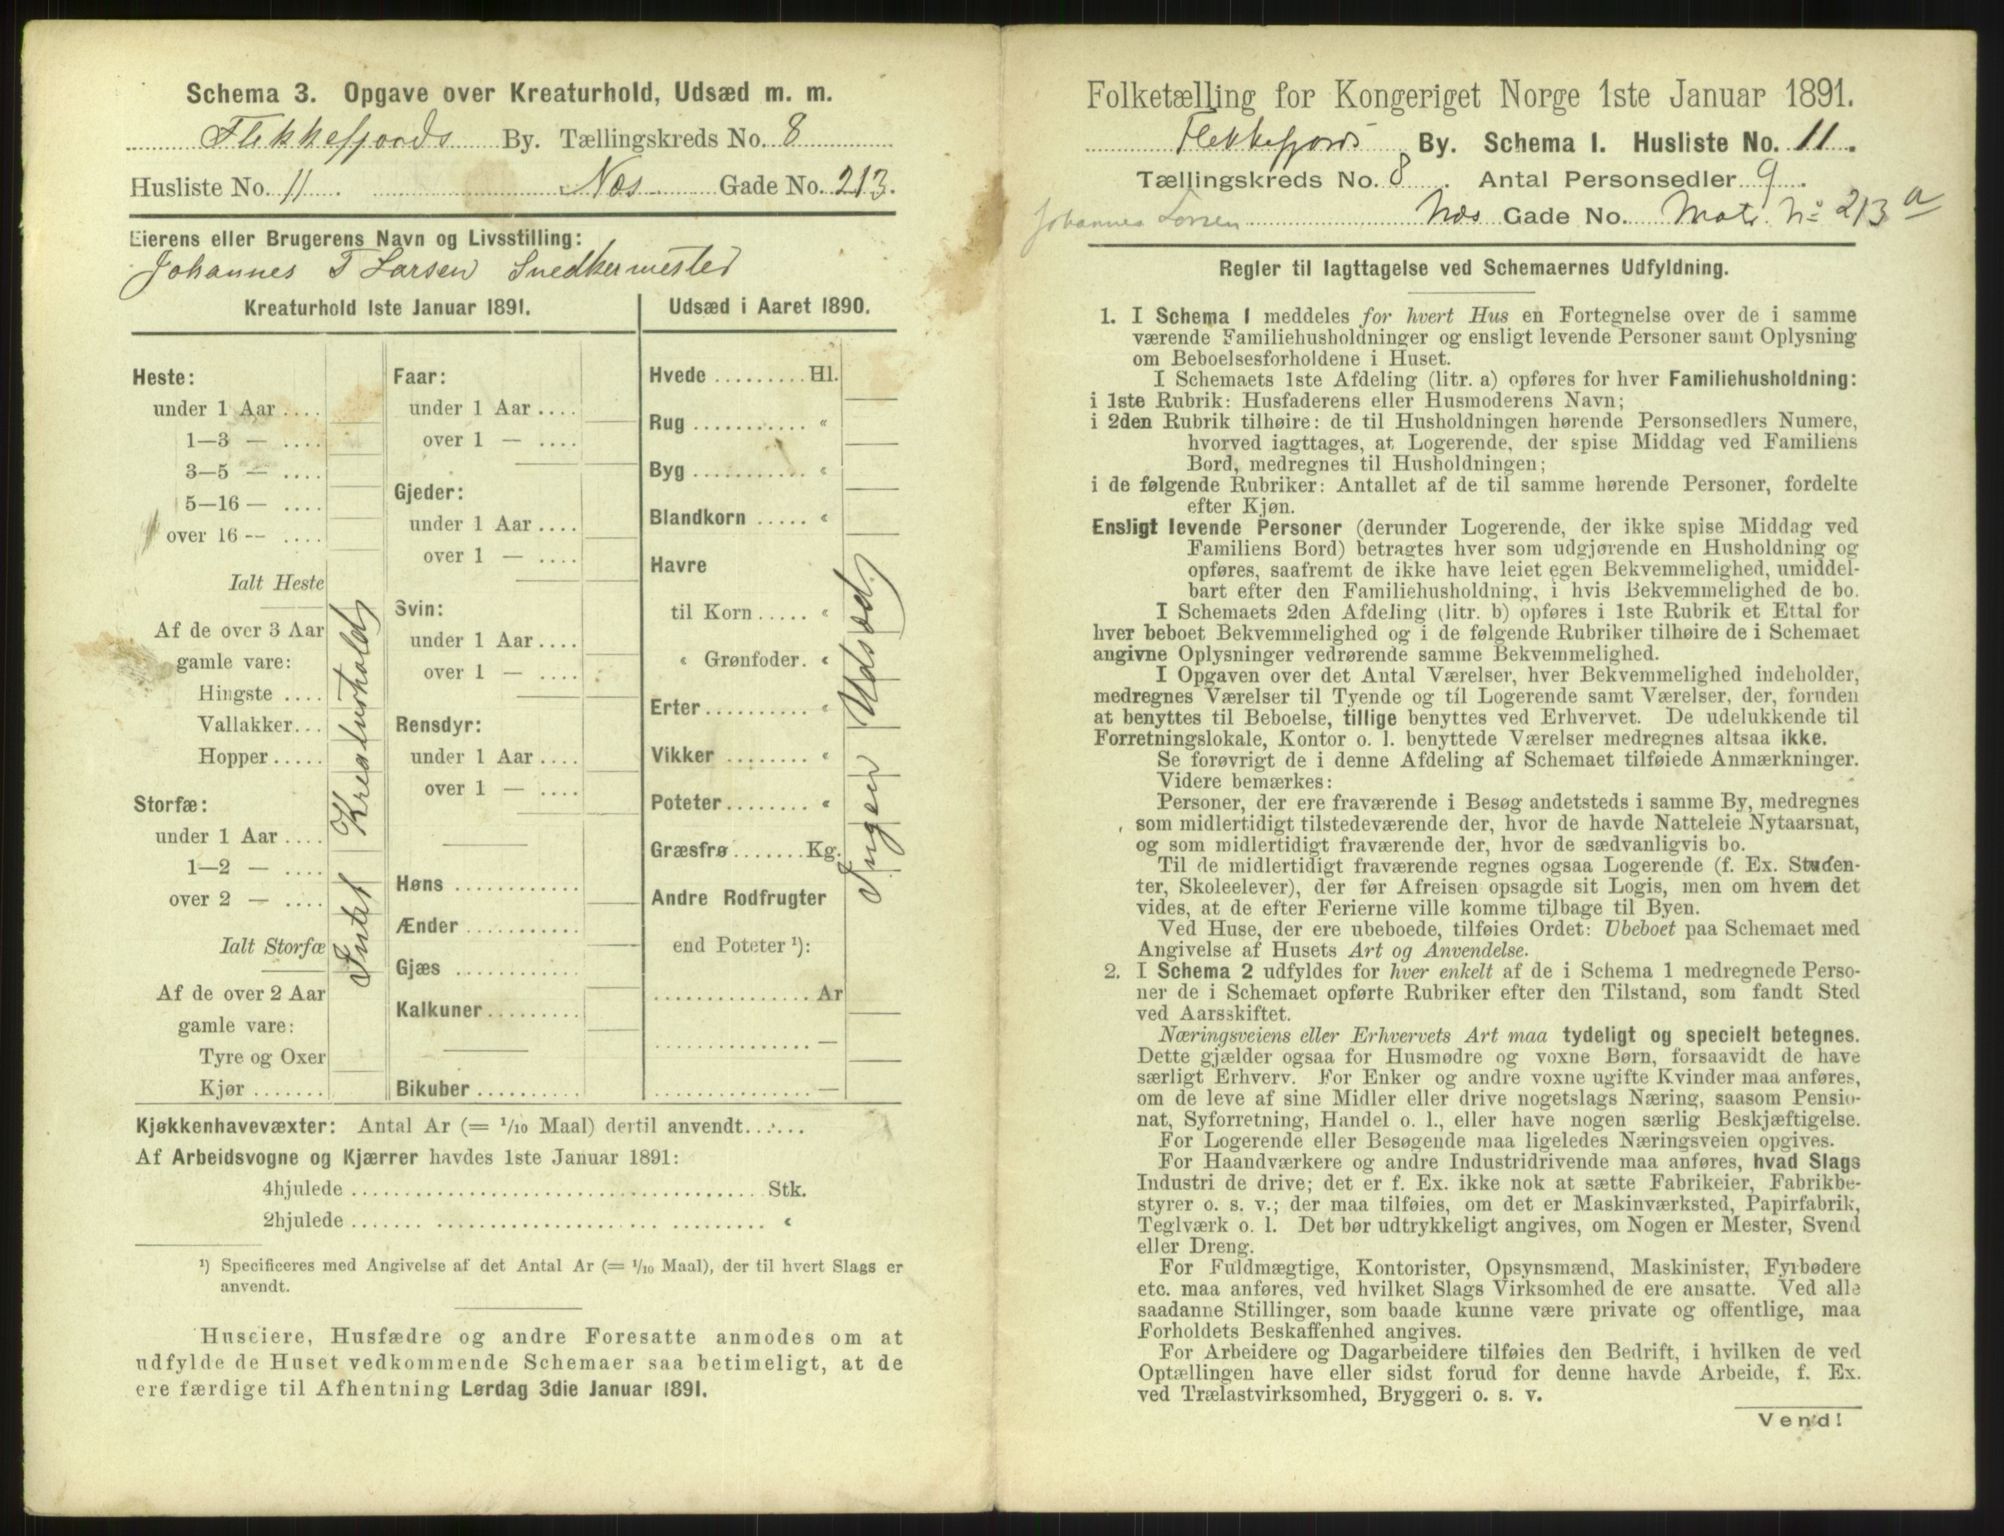 Schema 3. Opgave over Kreaturhold, Udsæd m. m.
Flekkefjords By. Tællingskreds No. 8
Husliste No. 11. Næs Gade No. 213.
Eierens eller Brugerens Navn og Livsstilling:
Johannes T Larsen Snedkermester
Kreaturhold 1ste Januar 1891.
Heste:
under 1 Aar ....
1—3 — ....
3—5 — ....
5—16 — ....
over 16 — ....
Ialt Heste
Af de over 3 Aar
gamle vare:
Hingste ....
Vallakker...
Hopper.....
Storfæ:
under 1 Aar ....
1—2 — ....
over 2 — ....
Ialt Storfæ
Af de over 2 Aar
gamle vare:
Tyre og Oxer
Kjør .......
Intet Kreaturhold
Faar:
under 1 Aar ....
over 1 — ....
Gjeder:
under 1 Aar ....
over 1 — ....
Svin:
under 1 Aar ....
over 1 — ....
Rensdyr:
under 1 Aar ....
over 1 — ....
Høns ..........
Ænder ..........
Gjæs ..........
Kalkuner .........
Bikuber ..........
Udsæd i Aaret 1890.
Hvede ......... Hl.
Rug ........... "
Byg ........... "
Blandkorn ..... "
Havre
til Korn ..... "
" Grønfoder. "
Erter .......... "
Vikker ........ "
Poteter ........ "
Græsfrø ....... Kg.
Andre Rodfrugter
end Poteter ¹):
............... Ar
............... —
............... —
Ingen Udsæd
Kjøkkenhavevæxter: Antal Ar (= 1/10 Maal) dertil anvendt......
Af Arbeidsvogne og Kjærrer havdes 1ste Januar 1891:
4hjulede ....................................... Stk.
2hjulede ....................................... "
¹) Specificeres med Angivelse af det Antal Ar (= 1/10 Maal), der til hvert Slags er
anvendt.
Huseiere, Husfædre og andre Foresatte anmodes om at
udfylde de Huset vedkommende Schemaer saa betimeligt, at de
ere færdige til Afhentning Lørdag 3die Januar 1891.
Folketælling for Kongeriget Norge 1ste Januar 1891.
Flekkefjords By. Schema I. Husliste No. 11.
Tællingskreds No. 8. Antal Personsedler 9.
Johannes Larsen Næs Gade No. Matr. No 213 a
Regler til Iagttagelse ved Schemaernes Udfyldning.
1. I Schema 1 meddeles for hvert Hus en Fortegnelse over de i samme
værende Familiehusholdninger og ensligt levende Personer samt Oplysning
om Beboelsesforholdene i Huset.
I Schemaets 1ste Afdeling (litr. a) opføres for hver Familiehusholdning:
i 1ste Rubrik: Husfaderens eller Husmoderens Navn;
i 2den Rubrik tilhøire: de til Husholdningen hørende Personsedlers Numere,
hvorved iagttages, at Logerende, der spise Middag ved Familiens
Bord, medregnes til Husholdningen;
i de følgende Rubriker: Antallet af de til samme hørende Personer, fordelte
efter Kjøn.
Ensligt levende Personer (derunder Logerende, der ikke spise Middag ved
Familiens Bord) betragtes hver som udgjørende en Husholdning og
opføres, saafremt de ikke have leiet egen Bekvemmelighed, umiddel-
bart efter den Familiehusholdning, i hvis Bekvemmelighed de bo.
I Schemaets 2den Afdeling (litr. b) opføres i 1ste Rubrik et Ettal for
hver beboet Bekvemmelighed og i de følgende Rubriker tilhøire de i Schemaet
angivne Oplysninger vedrørende samme Bekvemmelighed.
I Opgaven over det Antal Værelser, hver Bekvemmelighed indeholder,
medregnes Værelser til Tyende og til Logerende samt Værelser, der, foruden
at benyttes til Beboelse, tillige benyttes ved Erhvervet. De udelukkende til
Forretningslokale, Kontor o. l. benyttede Værelser medregnes altsaa ikke.
Se forøvrigt de i denne Afdeling af Schemaet tilføiede Anmærkninger.
Videre bemærkes:
Personer, der ere fraværende i Besøg andetsteds i samme By, medregnes
som midlertidigt tilstedeværende der, hvor de havde Natteleie Nytaarsnat,
og som midlertidigt fraværende der, hvor de sædvanligvis bo.
Til de midlertidigt fraværende regnes ogsaa Logerende (f. Ex. Studen-
ter, Skoleelever), der før Afreisen opsagde sit Logis, men om hvem det
vides, at de efter Ferierne ville komme tilbage til Byen.
Ved Huse, der ere ubeboede, tilføies Ordet: Ubeboet paa Schemaet med
Angivelse af Husets Art og Anvendelse.
2. I Schema 2 udfyldes for hver enkelt af de i Schema 1 medregnede Perso-
ner de i Schemaet opførte Rubriker efter den Tilstand, som fandt Sted
ved Aarsskiftet.
Næringsveiens eller Erhvervets Art maa tydeligt og specielt betegnes.
Dette gjælder ogsaa for Husmødre og voxne Børn, forsaavidt de have
særligt Erhverv. For Enker og andre voxne ugifte Kvinder maa anføres,
om de leve af sine Midler eller drive nogetslags Næring, saasom Pensio-
nat, Syforretning, Handel o. l., eller have nogen særlig Beskjæftigelse.
For Logerende eller Besøgende maa ligeledes Næringsveien opgives.
For Haandværkere og andre Industridrivende maa anføres, hvad Slags
Industri de drive; det er f. Ex. ikke nok at sætte Fabrikeier, Fabrikbe-
styrer o. s. v.; der maa tilføies, om det er Maskinværksted, Papirfabrik,
Teglværk o. l. Det bør udtrykkeligt angives, om Nogen er Mester, Svend
eller Dreng.
For Fuldmægtige, Kontorister, Opsynsmænd, Maskinister, Fyrbødere
etc. maa anføres, ved hvilket Slags Virksomhed de ere ansatte. Ved alle
saadanne Stillinger, som baade kunne være private og offentlige, maa
Forholdets Beskaffenhed angives.
For Arbeidere og Dagarbeidere tilføies den Bedrift, i hvilken de ved
Optællingen have eller sidst forud for denne havde Arbeide, f. Ex.
ved Trælastvirksomhed, Bryggeri o. s. v.
Vend!